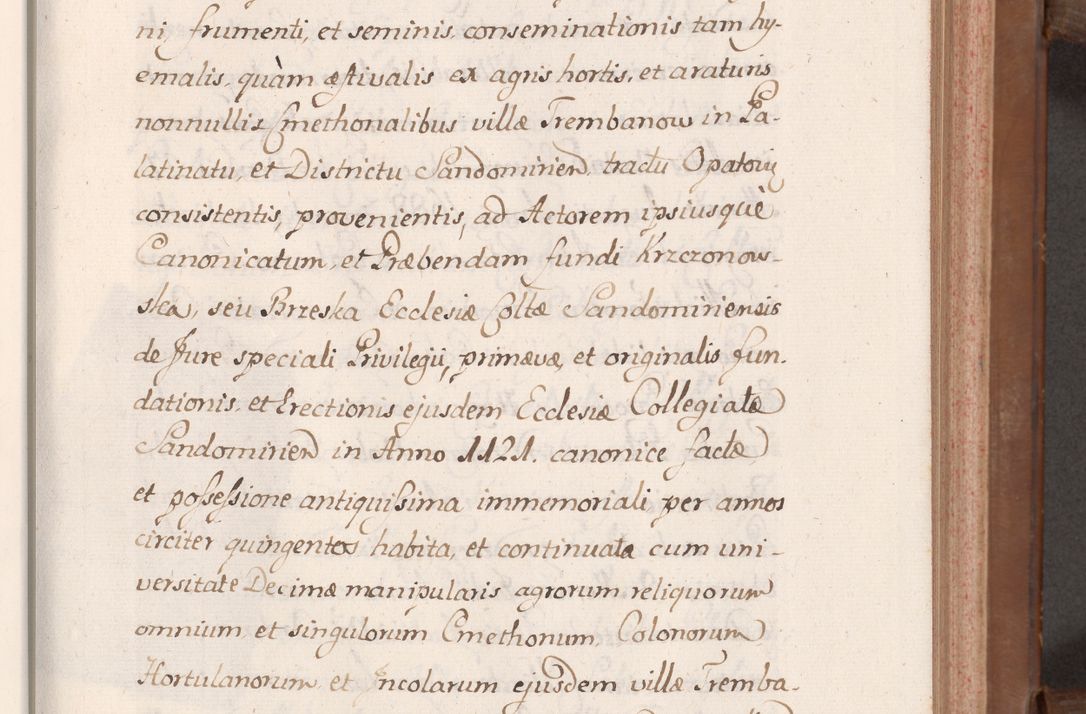 nis frumenti, et seminis, conseminationis tam hy-
emalis, quàm æstivalis ex agris hortis, et araturis
nonnullis Cmethonalibus villæ Trembanow in Pa-
latinatu, et Districtu Sandomirien, tractu Opatovien
consistentis, provenientis, ad Actorem ipsiusquè
Canonicatum, et Præbendam fundi Krzczonow-
ska, seu Brzeska Ecclesiæ Colltæ Sandomiriensis
de Jure speciali Privilegii, primævæ, et originalis fun-
dationis, et Erectionis ejusdem Ecclesiæ Collegiatæ
Sandomirien in Anno 1121. canonice factæ,
et possessione antiquissima immemoriali per annos
circiter quingentos habita, et continuata cum uni-
versitate Decimæ manipularis agrorum reliquorum
omnium et singulorum Cmethonum, Colonorum
Hortulanorum, et Incolarum ejusdem villæ Tremba-